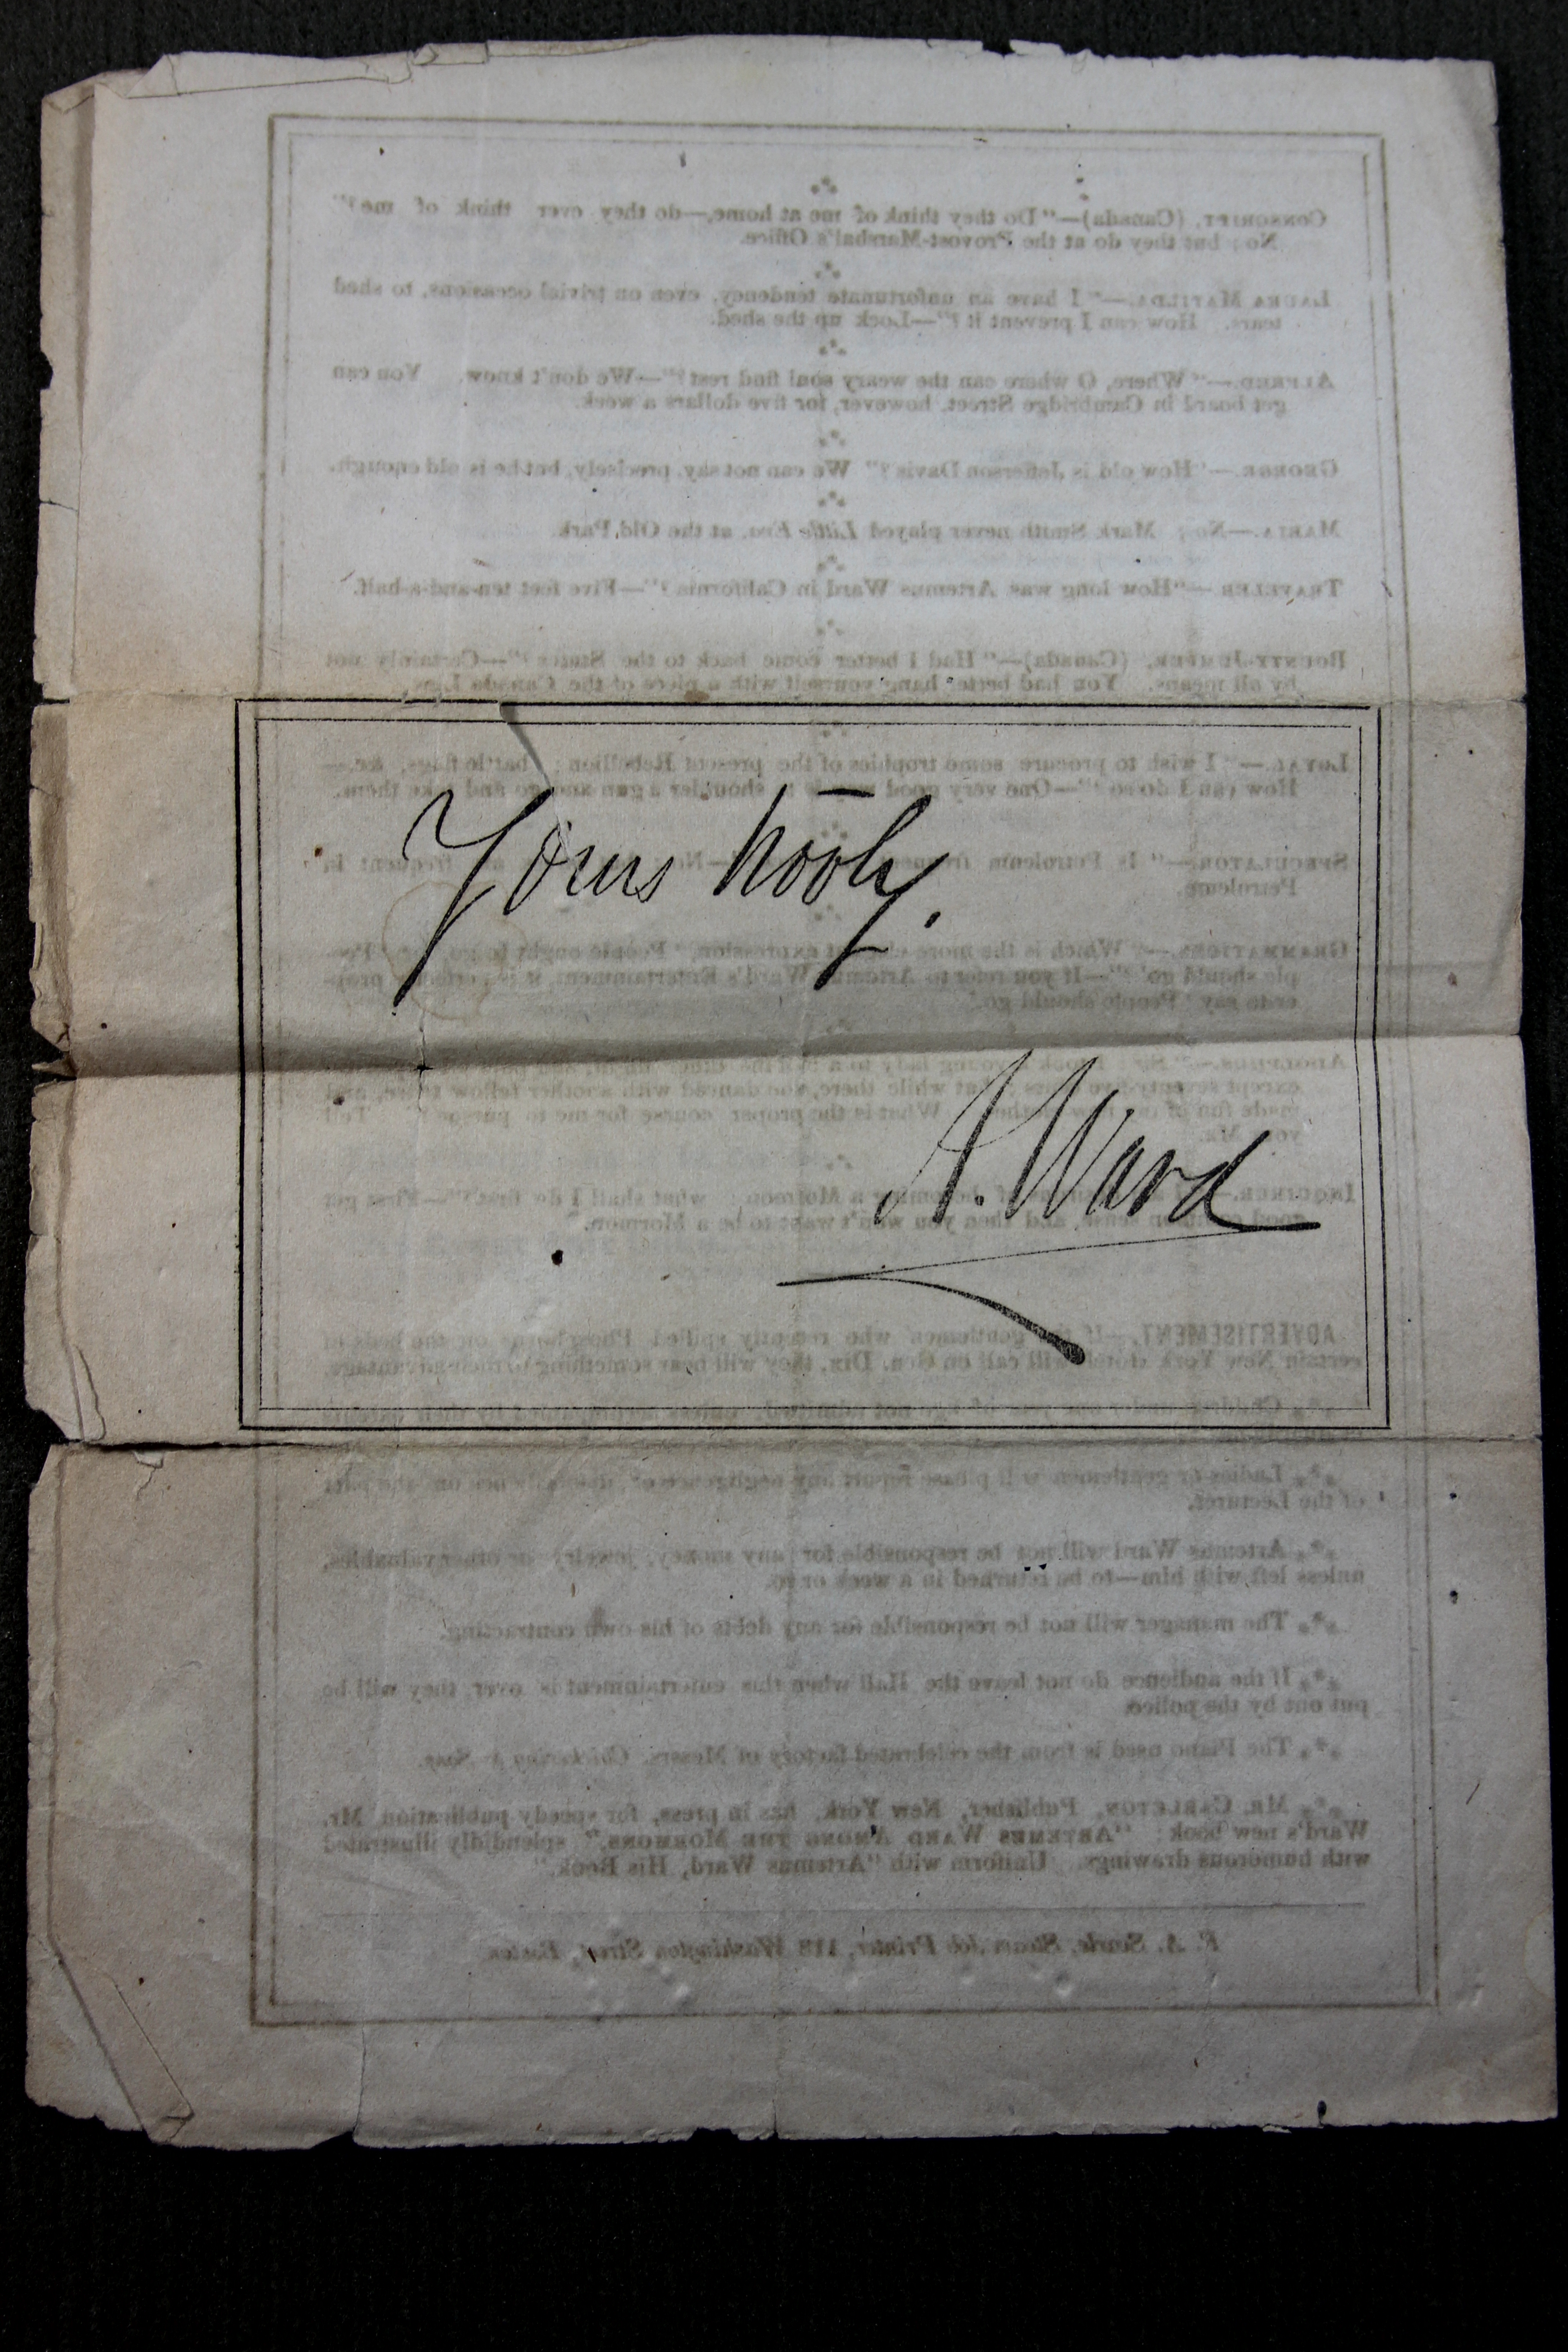 Yours trooly.
A. Ward
CONSCRIPT, (Canada)—"Do they think of me at home,—do they ever think of me?"
No; but they do at the Provost-Marshal's Office.
LAURA MATILDA.—"I have an unfortunate tendency, even on trivial occasions, to shed
tears. How can I prevent it?"—Lock up the shed.
ALFRED.—"Where, O where can the weary soul find rest?"—We don't know. You can
get board in Cambridge Street, however, for five dollars a week.
GEORGE.—"How old is Jefferson Davis?" We can not say, precisely, but he is old enough.
MARIA.—No; Mark Smith never played Little Eva, at the Old Park.
TRAVELER.—"How long was Artemus Ward in California?"—Five feet ten-and-a-half.
BOUNTY-JUMPER, (Canada)—"Had I better come back to the States?"—Certainly not
by all means. You had better hang yourself with a piece of the Canada Line.
LOYAL.—"I wish to procure some trophies of the present Rebellion; battle flags, &c.—
How can I do so?"—One very good shoulder a gun and go and take them.
SPECULATOR.—"Is Petroleum frequent in
Petroleum.
GRAMMATICUS.—"Which is the more expression, 'People ought to go,' or 'Peo-
ple should go'?"—If you refer to Artemus Ward's Entertainment, it is prop-
er to say 'People should go.'
ADOLPHUS.—young lady to a
except seventy-five while there, she danced with another fellow
made fun of What is the proper course for me to pursue?
INQUIRER.—becoming a Mormon; what shall I do first?"—First get
good common sense, and then you won't want to be a Mormon.
ADVERTISEMENT.—If the gentlemen who recently spilled Phosphorus on the beds in
certain New York hotels will call on Gen. Dix, they will hear something to their advantage.
*** Ladies or gentlemen will please report any negligence or on the part
of the Lecturer.
*** Artemus Ward will not be responsible for any money, jewelry or other valuables,
unless left with him—to be returned in a week or so.
*** The manager will not be responsible for any debts of his own contracting.
*** If the audience do not leave the Hall when this entertainment is over, they will be
put out by the police.
*** The Piano used is from the celebrated factory of Messrs. Chickering & Sons.
*** MR. CARLETON, Publisher, New York, has in press, for speedy publication Mr.
Ward's new book: "ARTEMUS WARD AMONG THE MORMONS," splendidly illustrated
with humorous drawings. Uniform with "Artemus Ward, His Book."
F. A. Searle, Steam Job Printer, 118 Washington Street, Boston